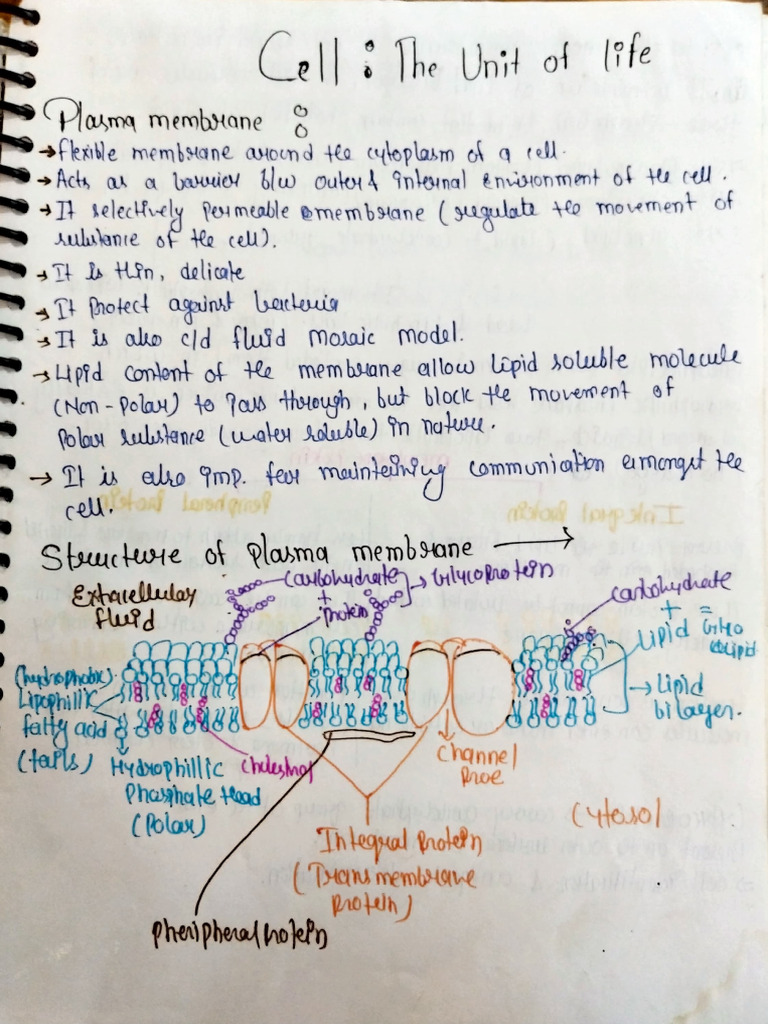 Cell : The Unit of life
Plasma membrane :
→ flexible membrane around the cytoplasm of a cell.
→ Acts as a barrier b/w outer & internal environment of the cell.
→ It selectively permeable membrane (regulate the movement of
substance of the cell).
→ It is thin, delicate
→ It Protect against bacteria
→ It is also c/d fluid mosaic model.
→ Lipid content of the membrane allow lipid soluble molecule
(Non-Polar) to pass through, but block the movement of
Polar substance (water soluble) in nature.
→ It is also imp. for maintening communication amongst the
cell.
Structure of plasma membrane →
Extracellular
fluid
Carbohydrate
+
Protein
→ Glycoprotein
Carbohydrate
+
Lipid =
(hydrophobic)
Lipophilic
fatty acid
(tails)
→ Lipid
bilayer.
Hydrophillic
Phosphate Head
(Polar)
Cholestrol
Channel
Proe
Cytosol
Integral protein
(Transmembrane
Protein)
Pheripheral protein
Integral Protein
Peripheral Protein